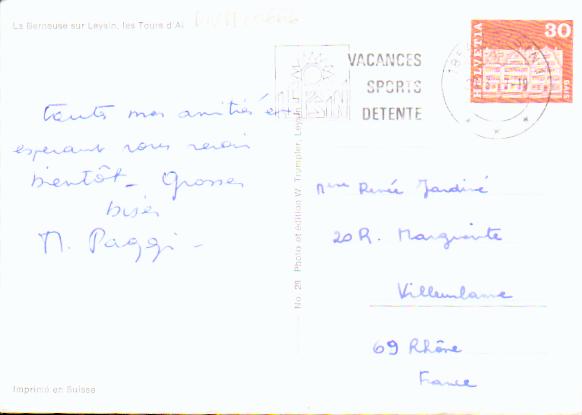 La Berneuse sur Leysin, les Tours d'Aï
HELVETIA
30
GAIS
VACANCES
SPORTS
DETENTE
toutes mes amitiés et
espérant vous revoir
bientôt - Grosses
bises
M. Paggi -
No. 28 Photo et édition W. Trumpler, Leysin
Mme Renée Jardiné
20 R. Marguerite
Villeurbanne
69 Rhône
France
Imprimé en Suisse